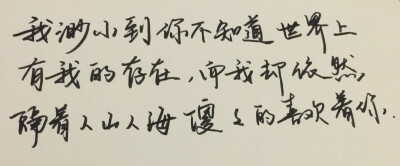 我渺小到你不知道世界上
有我的存在,而我却依然,
隔着人山人海傻々的喜欢着你.